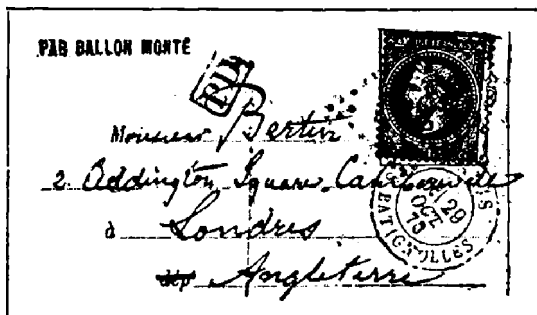 PAR BALLON MONTÉ
PD
Monsieur Bertin
2. Addington Square Camberwell
à Londres
dép Angleterre
29
OCT
70
BATIGNOLLES